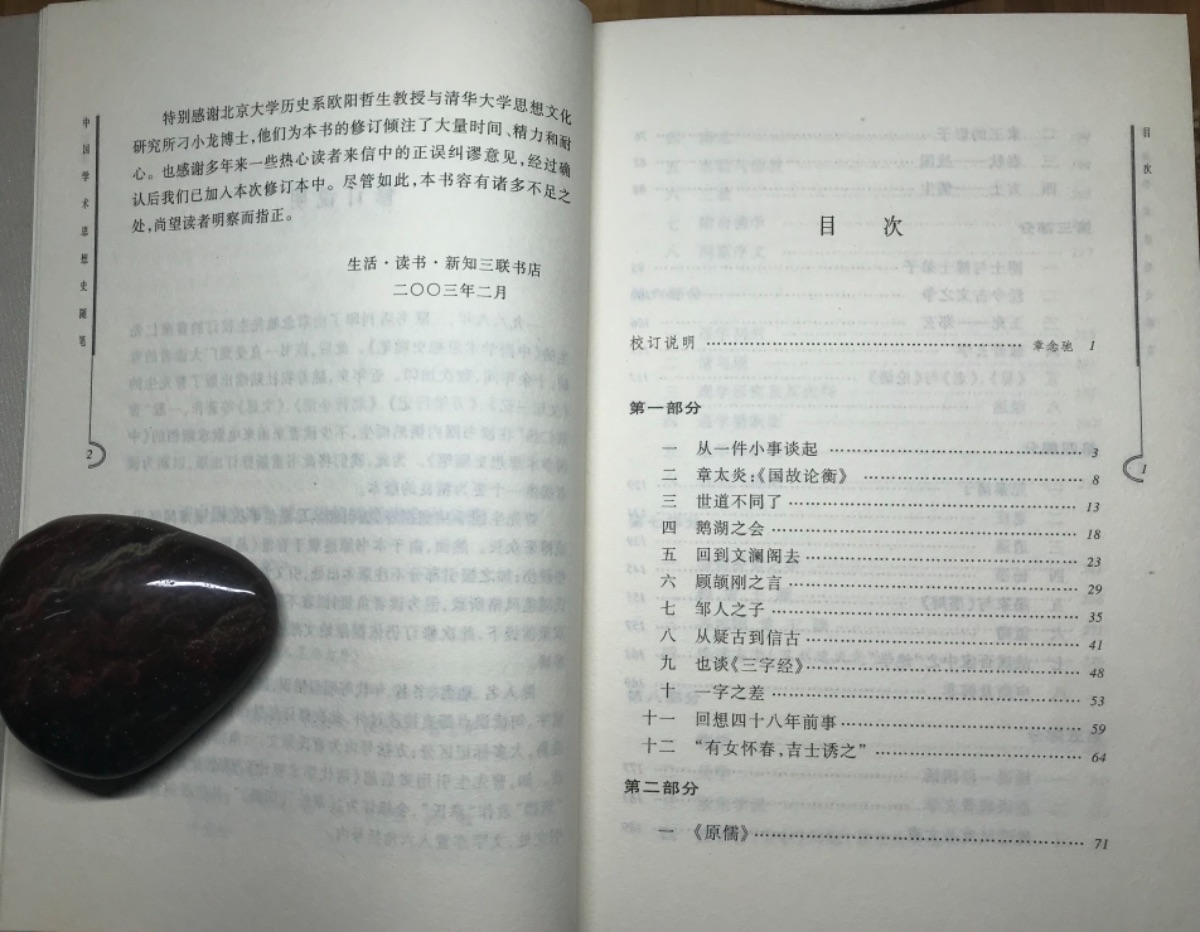 中国学术思想史随笔
特别感谢北京大学历史系欧阳哲生教授与清华大学思想文化
研究所刁小龙博士，他们为本书的修订倾注了大量时间、精力和耐
心。也感谢多年来一些热心读者来信中的正误纠谬意见，经过确
认后我们已加入本次修订本中。尽管如此，本书容有诸多不足之
处，尚望读者明察而指正。
生活·读书·新知三联书店
二〇〇三年二月
2
目次
目 次
校订说明 …… 章念驰 1
第一部分
一 从一件小事谈起 …… 3
二 章太炎：《国故论衡》 …… 8
三 世道不同了 …… 13
四 鹅湖之会 …… 18
五 回到文澜阁去 …… 23
六 顾颉刚之言 …… 29
七 邹人之子 …… 35
八 从疑古到信古 …… 41
九 也谈《三字经》 …… 48
十 一字之差 …… 53
十一 回想四十八年前事 …… 59
十二 “有女怀春，吉士诱之” …… 64
第二部分
一 《原儒》 …… 71
1